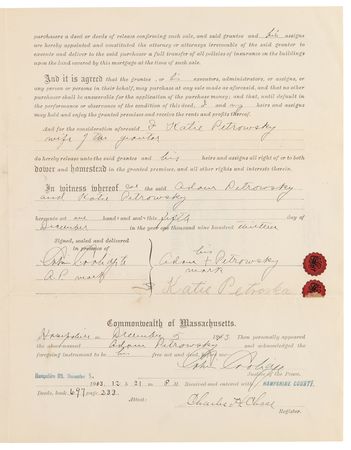 purchasers a deed or deeds of release confirming such sale, and said grantee and his assigns
are hereby appointed and constituted the attorney or attorneys irrevocable of the said grantor to
execute and deliver to the said purchaser a full transfer of all policies of insurance on the buildings
upon the land covered by this mortgage at the time of such sale.
And it is agreed that the grantee, or his executors, administrators, or assigns, or
any person or persons in their behalf, may purchase at any sale made as aforesaid, and that no other
purchaser shall be answerable for the application of the purchase money; and that, until default in
the performance or observance of the condition of this deed, I and my heirs and assigns
may hold and enjoy the granted premises and receive the rents and profits thereof.
And for the consideration aforesaid I Katie Petrowsky
wife of the grantor
do hereby release unto the said grantee and his heirs and assigns all right of or to both
dower and homestead in the granted premises, and all other rights and interests therein.
In witness whereof we the said Adam Petrowsky
and Katie Petrowsky
hereunto set our hands and seals this fifth day of
December in the year one thousand nine hundred thirteen
Signed, sealed and delivered
in presence of
A.P. mark
his
Adam + Petrowsky
mark
Katie Petroska
Commonwealth of Massachusetts.
Hampshire ss. December 5 1913 Then personally appeared
the above-named Adam Petrowsky and acknowledged the
foregoing instrument to be his free act and deed, before me
Justice of the Peace.
Hampshire ss. December 5,
1913, 12 h 21 m P. M. Received and entered with HAMPSHIRE COUNTY
Deeds, book 697 page 233.
Attest: Charles H. Chase
Register.